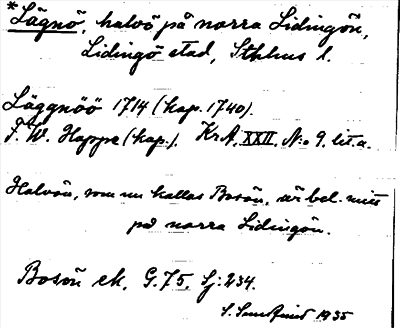 *Lägnö, halvö på norra Lidingön,
Lidingö stad, Sthlms l.
Läggnöö 1714 (kap. 1740).
F. W. Happe (kap.). KrA. XXII. N:o 9. lit. a.
Halvön, som nu kallas Bosön, är bel. mitt
på norra Lidingön.
Bosön ek. G. 75. Sj: 234.
S. 1935